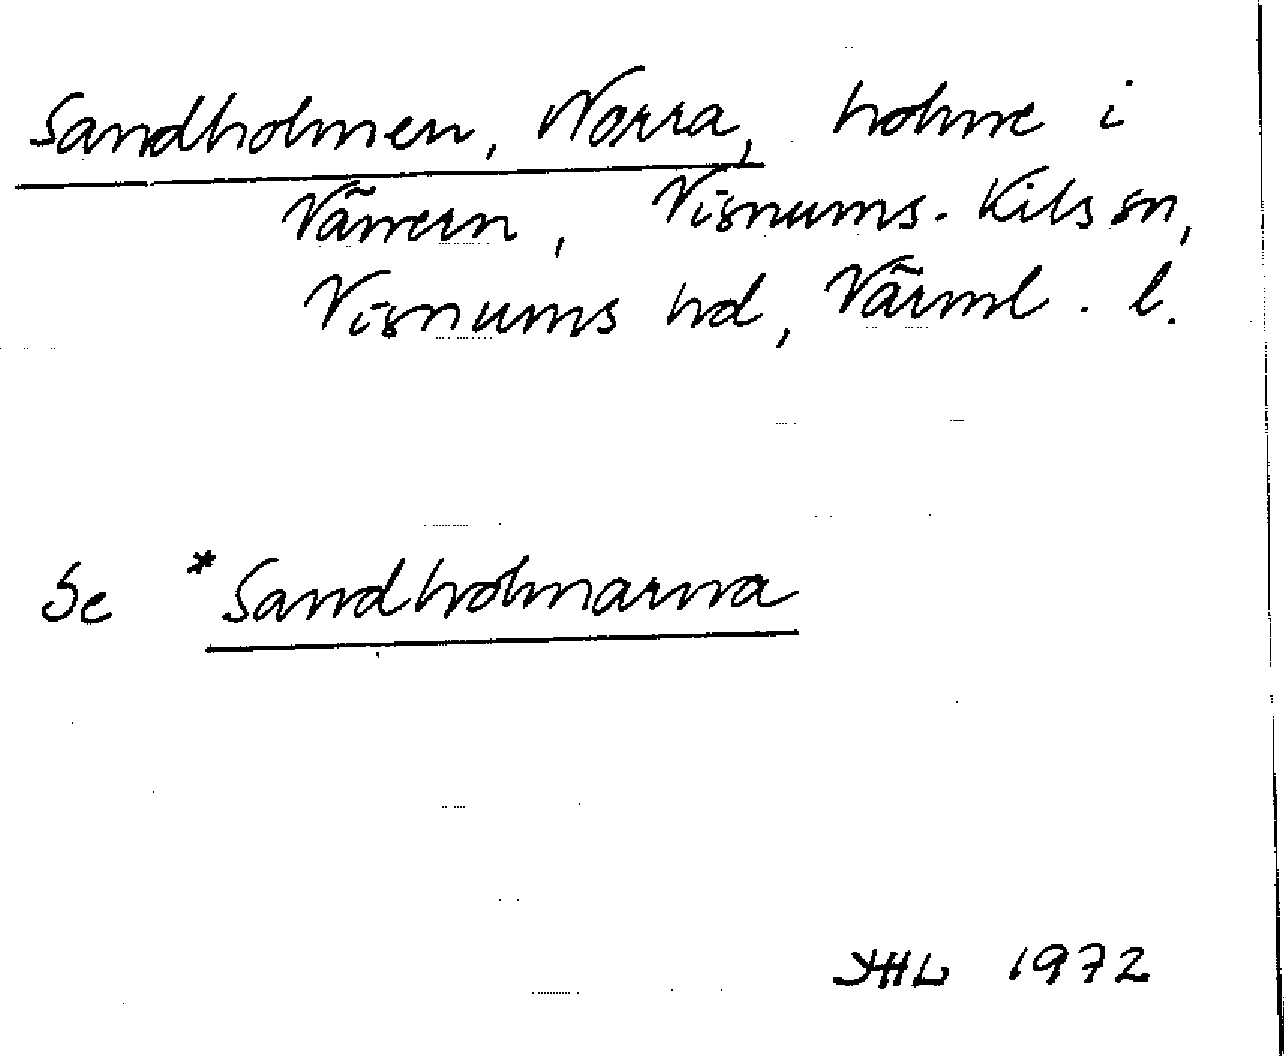 Sandholmen, Norra, holme i
Vänern, Visnums-Kils sn,
Visnums hd, Värml. l.
Se *Sandholmarna
1972